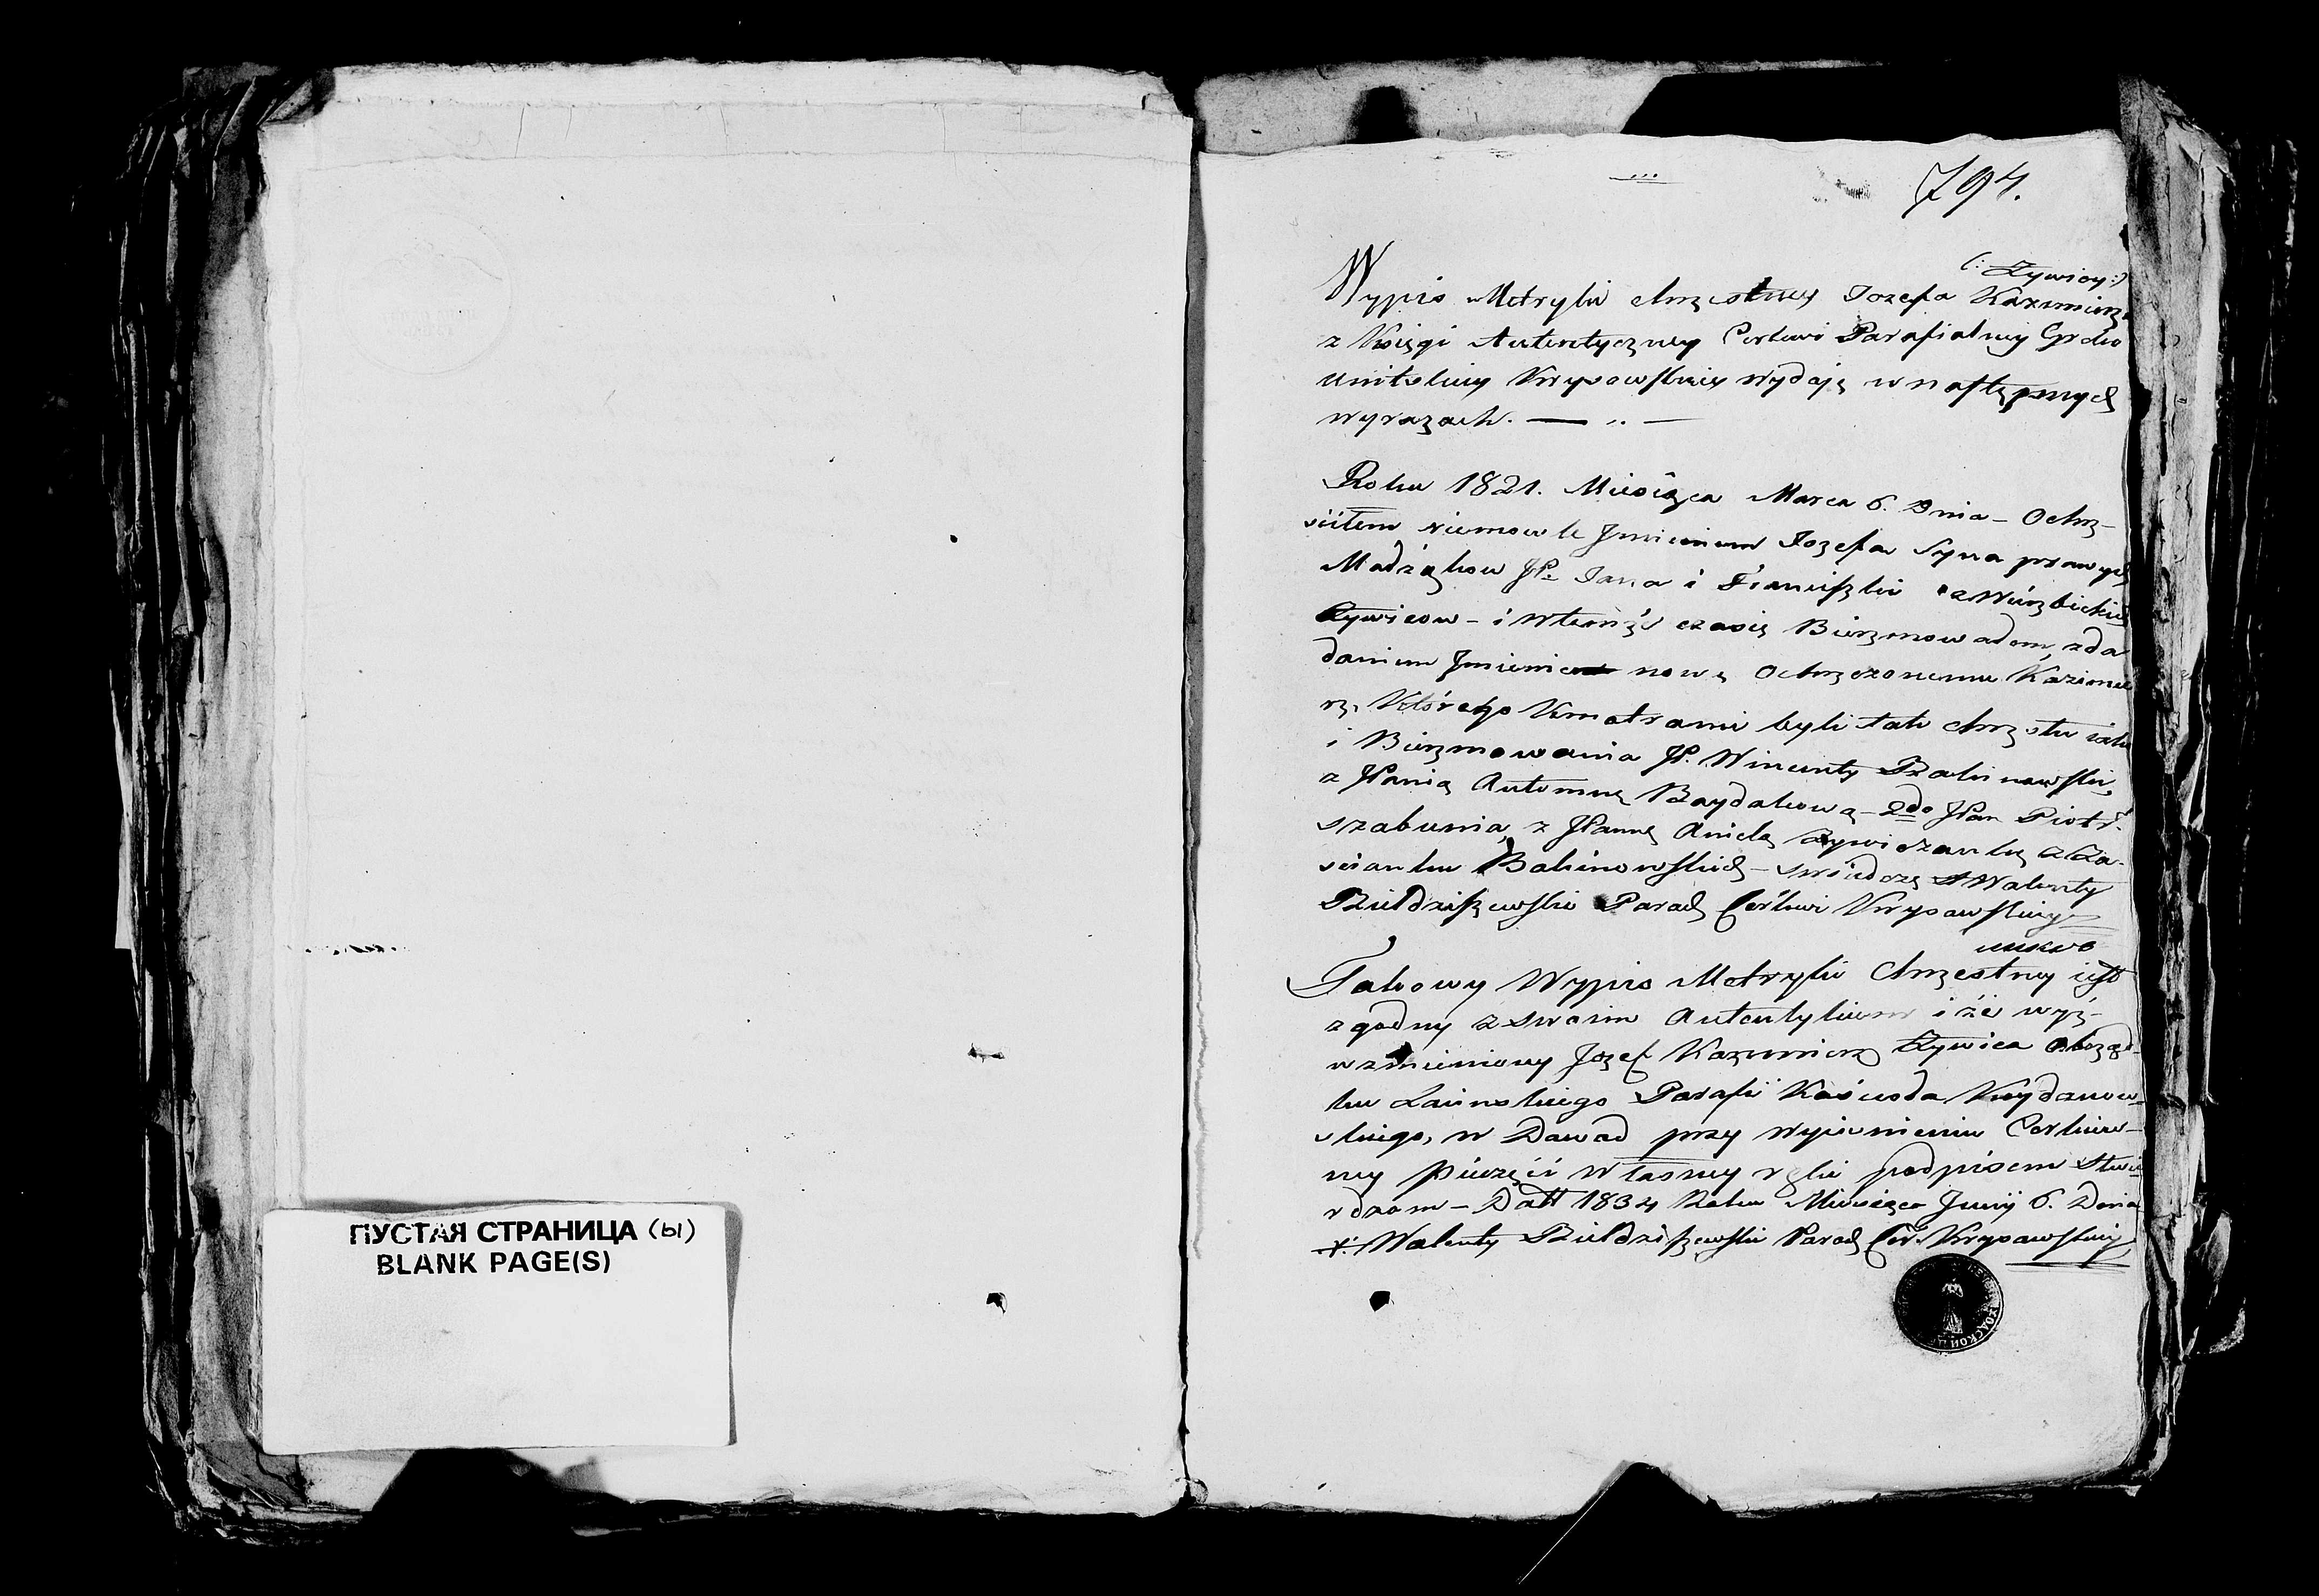 794.
(: Zywicy:)
Wypis Metryki chrzestney Jozefa Kazimierz
z Księgi Autentyczney Cerkwi Parafialney Greko
unitskiey Krysowskiey wydaię w nastęnych
wyrazach. — .. —
Roku 1821. Miesiąca Marca 6. Dnia - Ochrz-
ciłem niemowle Jmieniem Jozefa Syna prawych
Madżąkow JP. Jana i Franciszki z Wierzbickich
Zywicow - i w temże czasie Bierzmowałem, z da
daniem Jmienia nowo Ochrzczonemu Kazimie
rz, Którego Kmotrami byli tak chrztu iako
i Bierzmowania JP. Wincenty
z JPanią Antoninę Baydakową - 2do JPan Piotr
z JPanną Anielą Zywiczankę z Za-
scianku - swiadczę X Walenty
Bieldziszewski Paroch Cerkwi Krysowskiey
Takowy Wypis Metryki Chrzestney iest
zgodny z swoim Autentykiem i że wyż-
wzmieniony Jozef Kazimierz Zywica Obrząd-
ku Łacinskiego Parafii Koscioła Koydanow-
skiego, w Dowod przy wycisnieniu Cerkiew-
ney Pieczęci własney ręki podpisem stwie
rdzam - Datt 1834 Roku Miesiąca Junij 6. Dnia
X. Walenty Bieldziszewski Paroch Cer. Krysowskiey
ПУСТАЯ СТРАНИЦА (Ы)
BLANK PAGE(S)